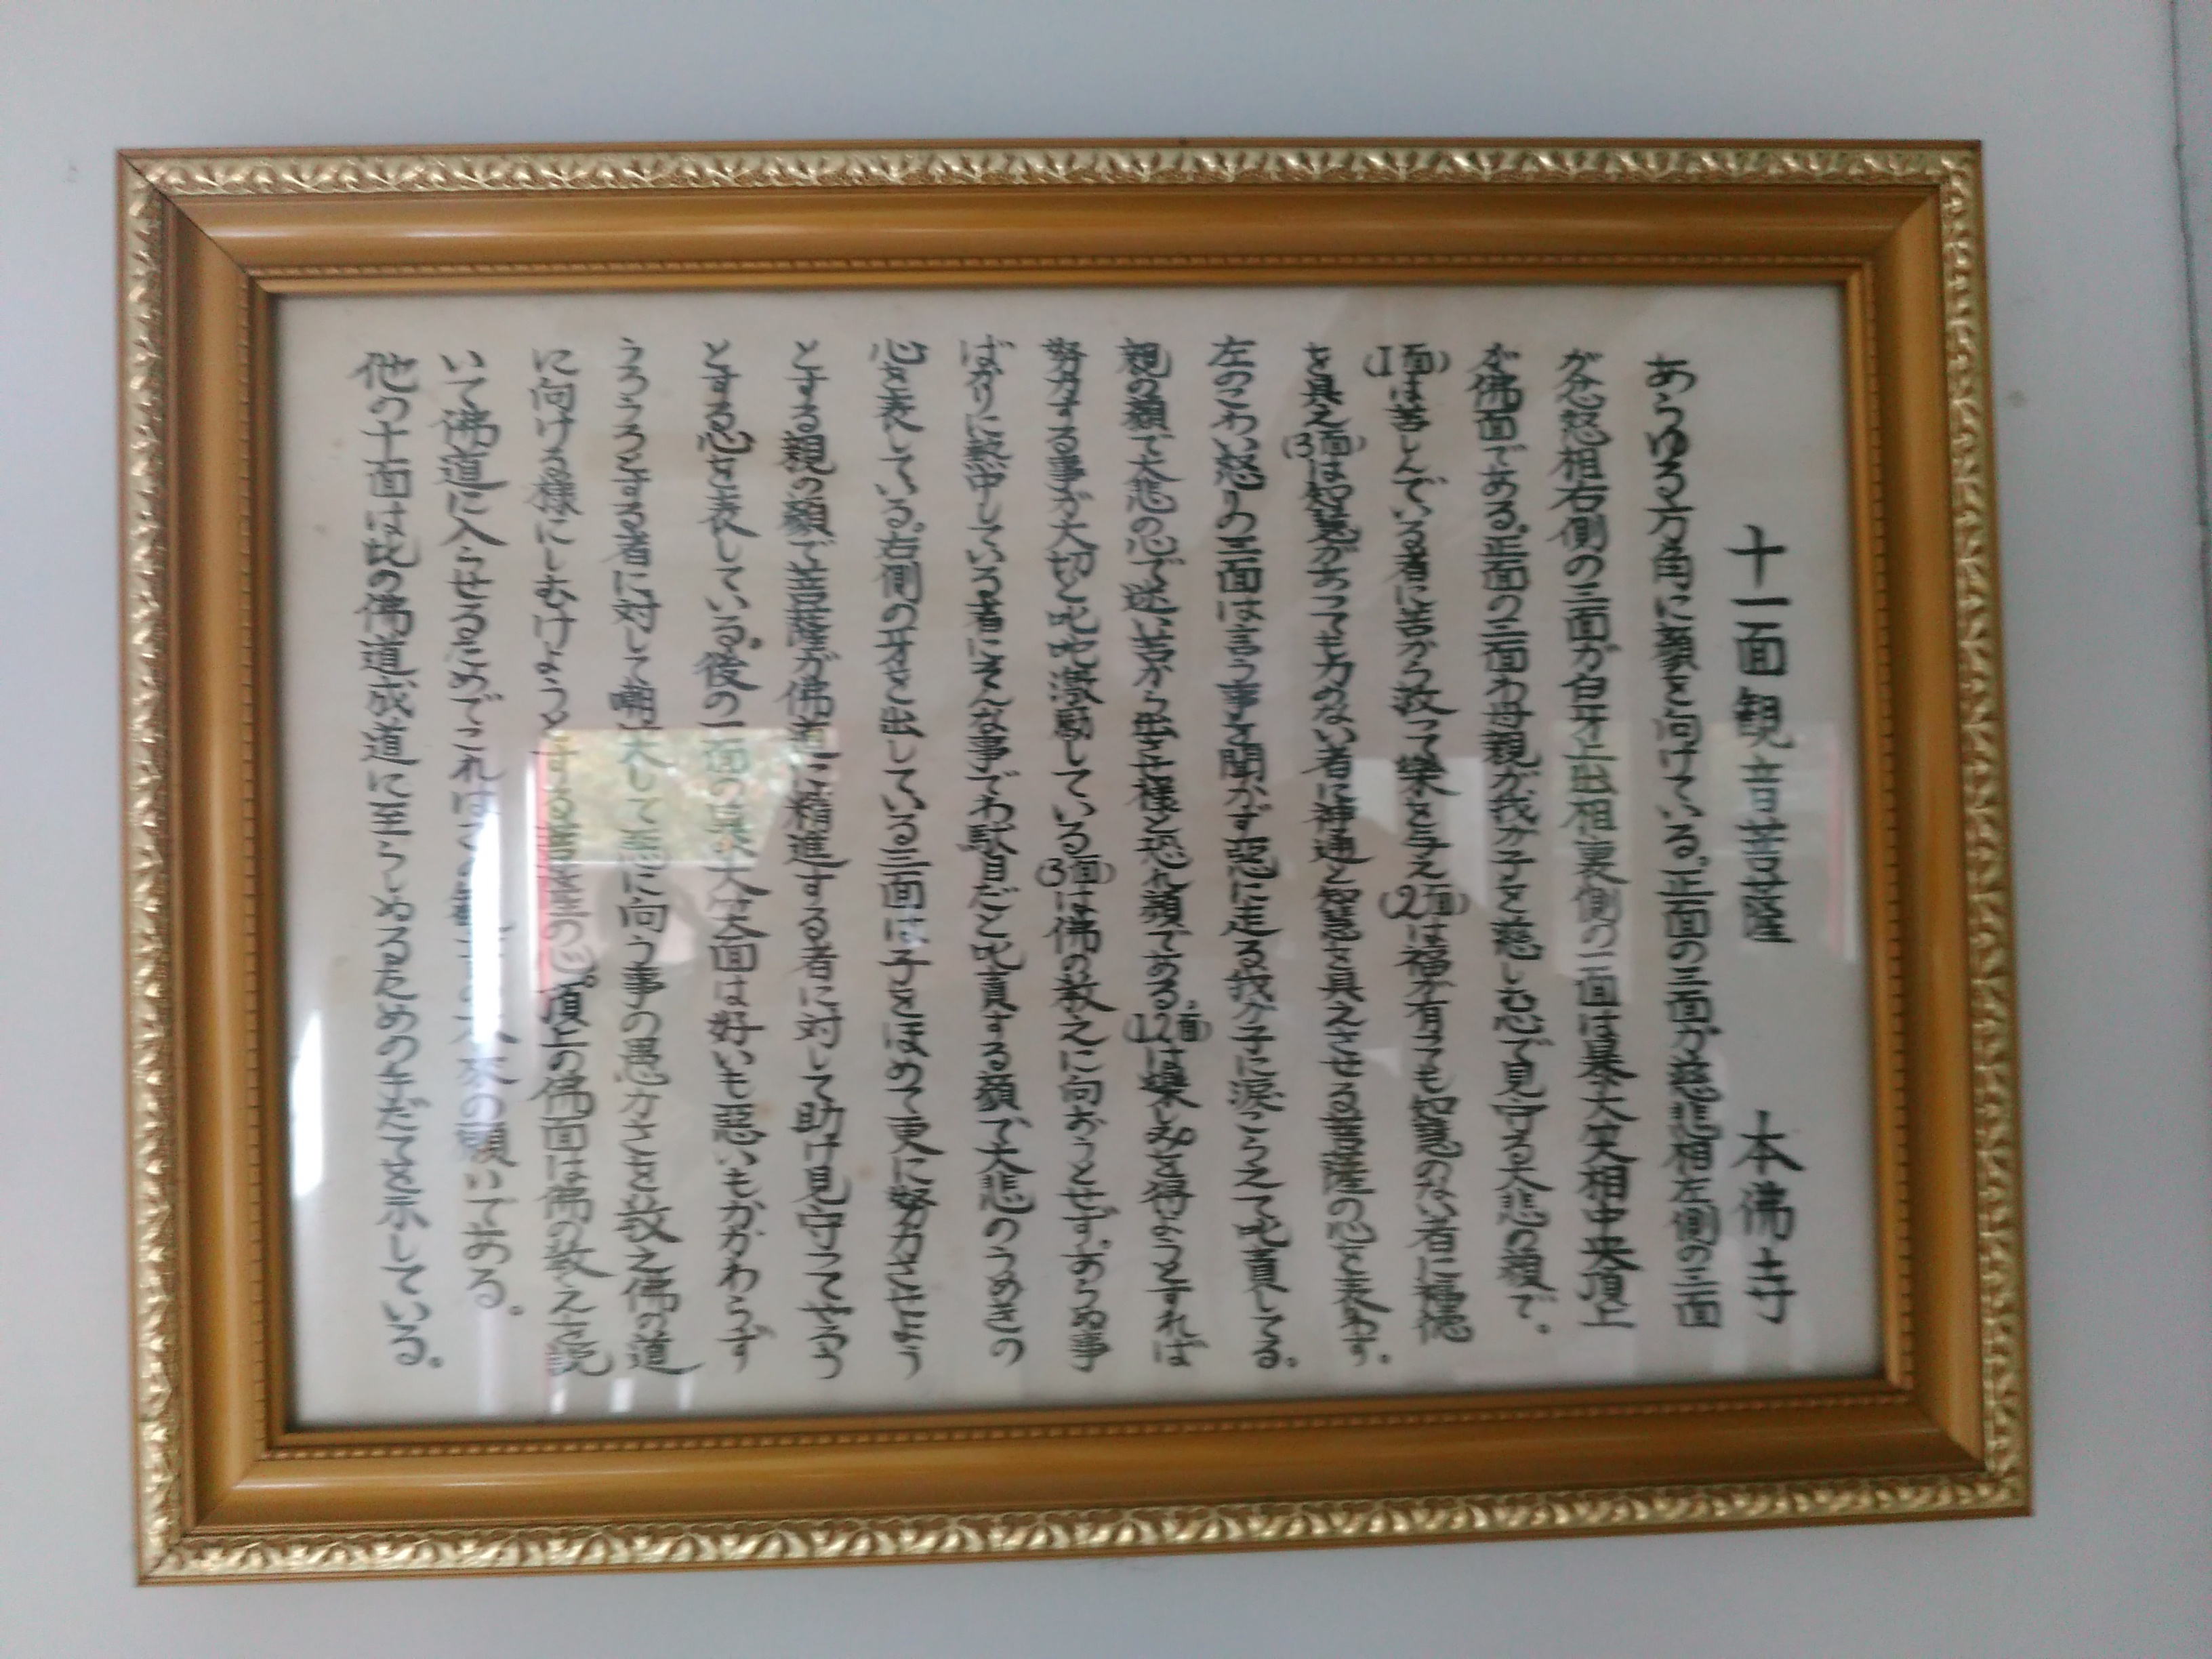 十一面観音菩薩　本佛寺
あらゆる方角に顔を向けている。正面の三面が慈悲相左側の三面
が忿怒相右側の三面が白牙上出相裏側の一面は暴大笑相中央頂上
が佛面である。正面の三面わ母親が我が子を慈しむ心で見守る大悲の顔で。
(1面)は苦しんでいる者に苦から救って樂を与え(2面)は福が有ても知慧のない者に福徳
を具え(3面)は知慧があっても力のない者に神通と知慧を具えさせる菩薩の心を表わす。
左のこわい怒りの三面は言う事を聞かず惡に走る我が子に涙こらえて叱責してる。
親の顔で大悲の心で迷い苦から出さ様と恐れ顔である。(1.2面)は樂しみを得ようとすれば
努力する事が大切と叱咤激励している(3面)は佛の教えに向おうとせず。あらぬ事
ばかりに熱中している者にそんな事でわ駄目だと叱責する顔で大悲のうめきの
心を表している。右側の牙を出している三面は子をほめて更に努力させよう
とする親の顔で菩薩が佛道に精進する者に対して助け見守ってやろう
とする心を表している。後の一面の暴大笑面は好いも惡いもかかわらず
うろうろする者に対して嘲笑して惡に向う事の愚かさを教え佛の道
に向ける様にしむけようとする菩薩の心。頂上の佛面は佛の教えを説
いて佛道に入らせるためでこれは の顔いである。
他の十面は此の佛道成道に至らしぬるための手だてを示している。